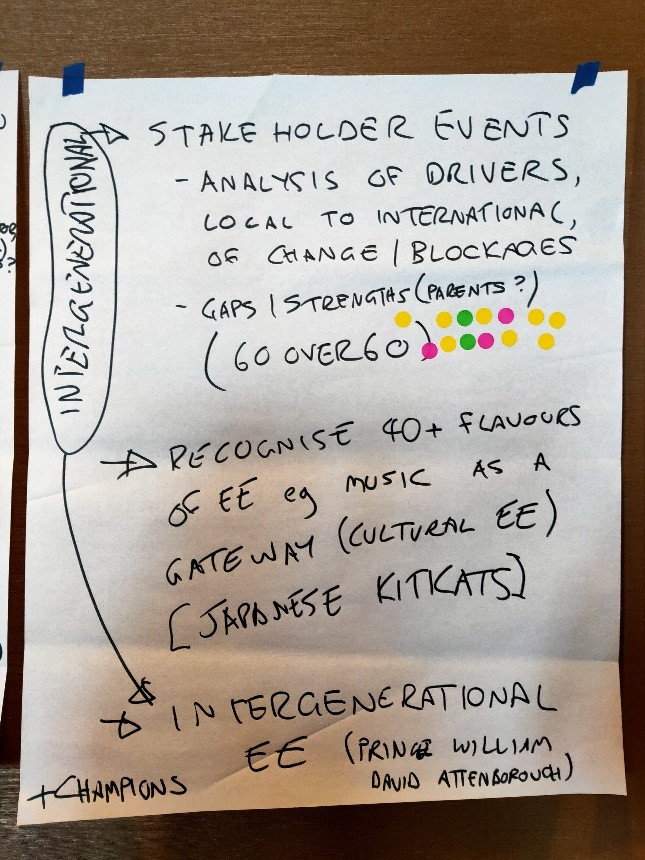 INTERGENERATIONAL
STAKE HOLDER EVENTS
- ANALYSIS OF DRIVERS,
LOCAL TO INTERNATIONAL,
OF CHANGE / BLOCKAGES
- GAPS / STRENGTHS (PARENTS?)
(60 OVER 60)
RECOGNISE 40+ FLAVOURS
OF EE eg MUSIC AS A
GATEWAY (CULTURAL EE)
[JAPANESE KITKATS]
INTERGENERATIONAL
EE (PRINCE WILLIAM
DAVID ATTENBOROUGH)
+CHAMPIONS